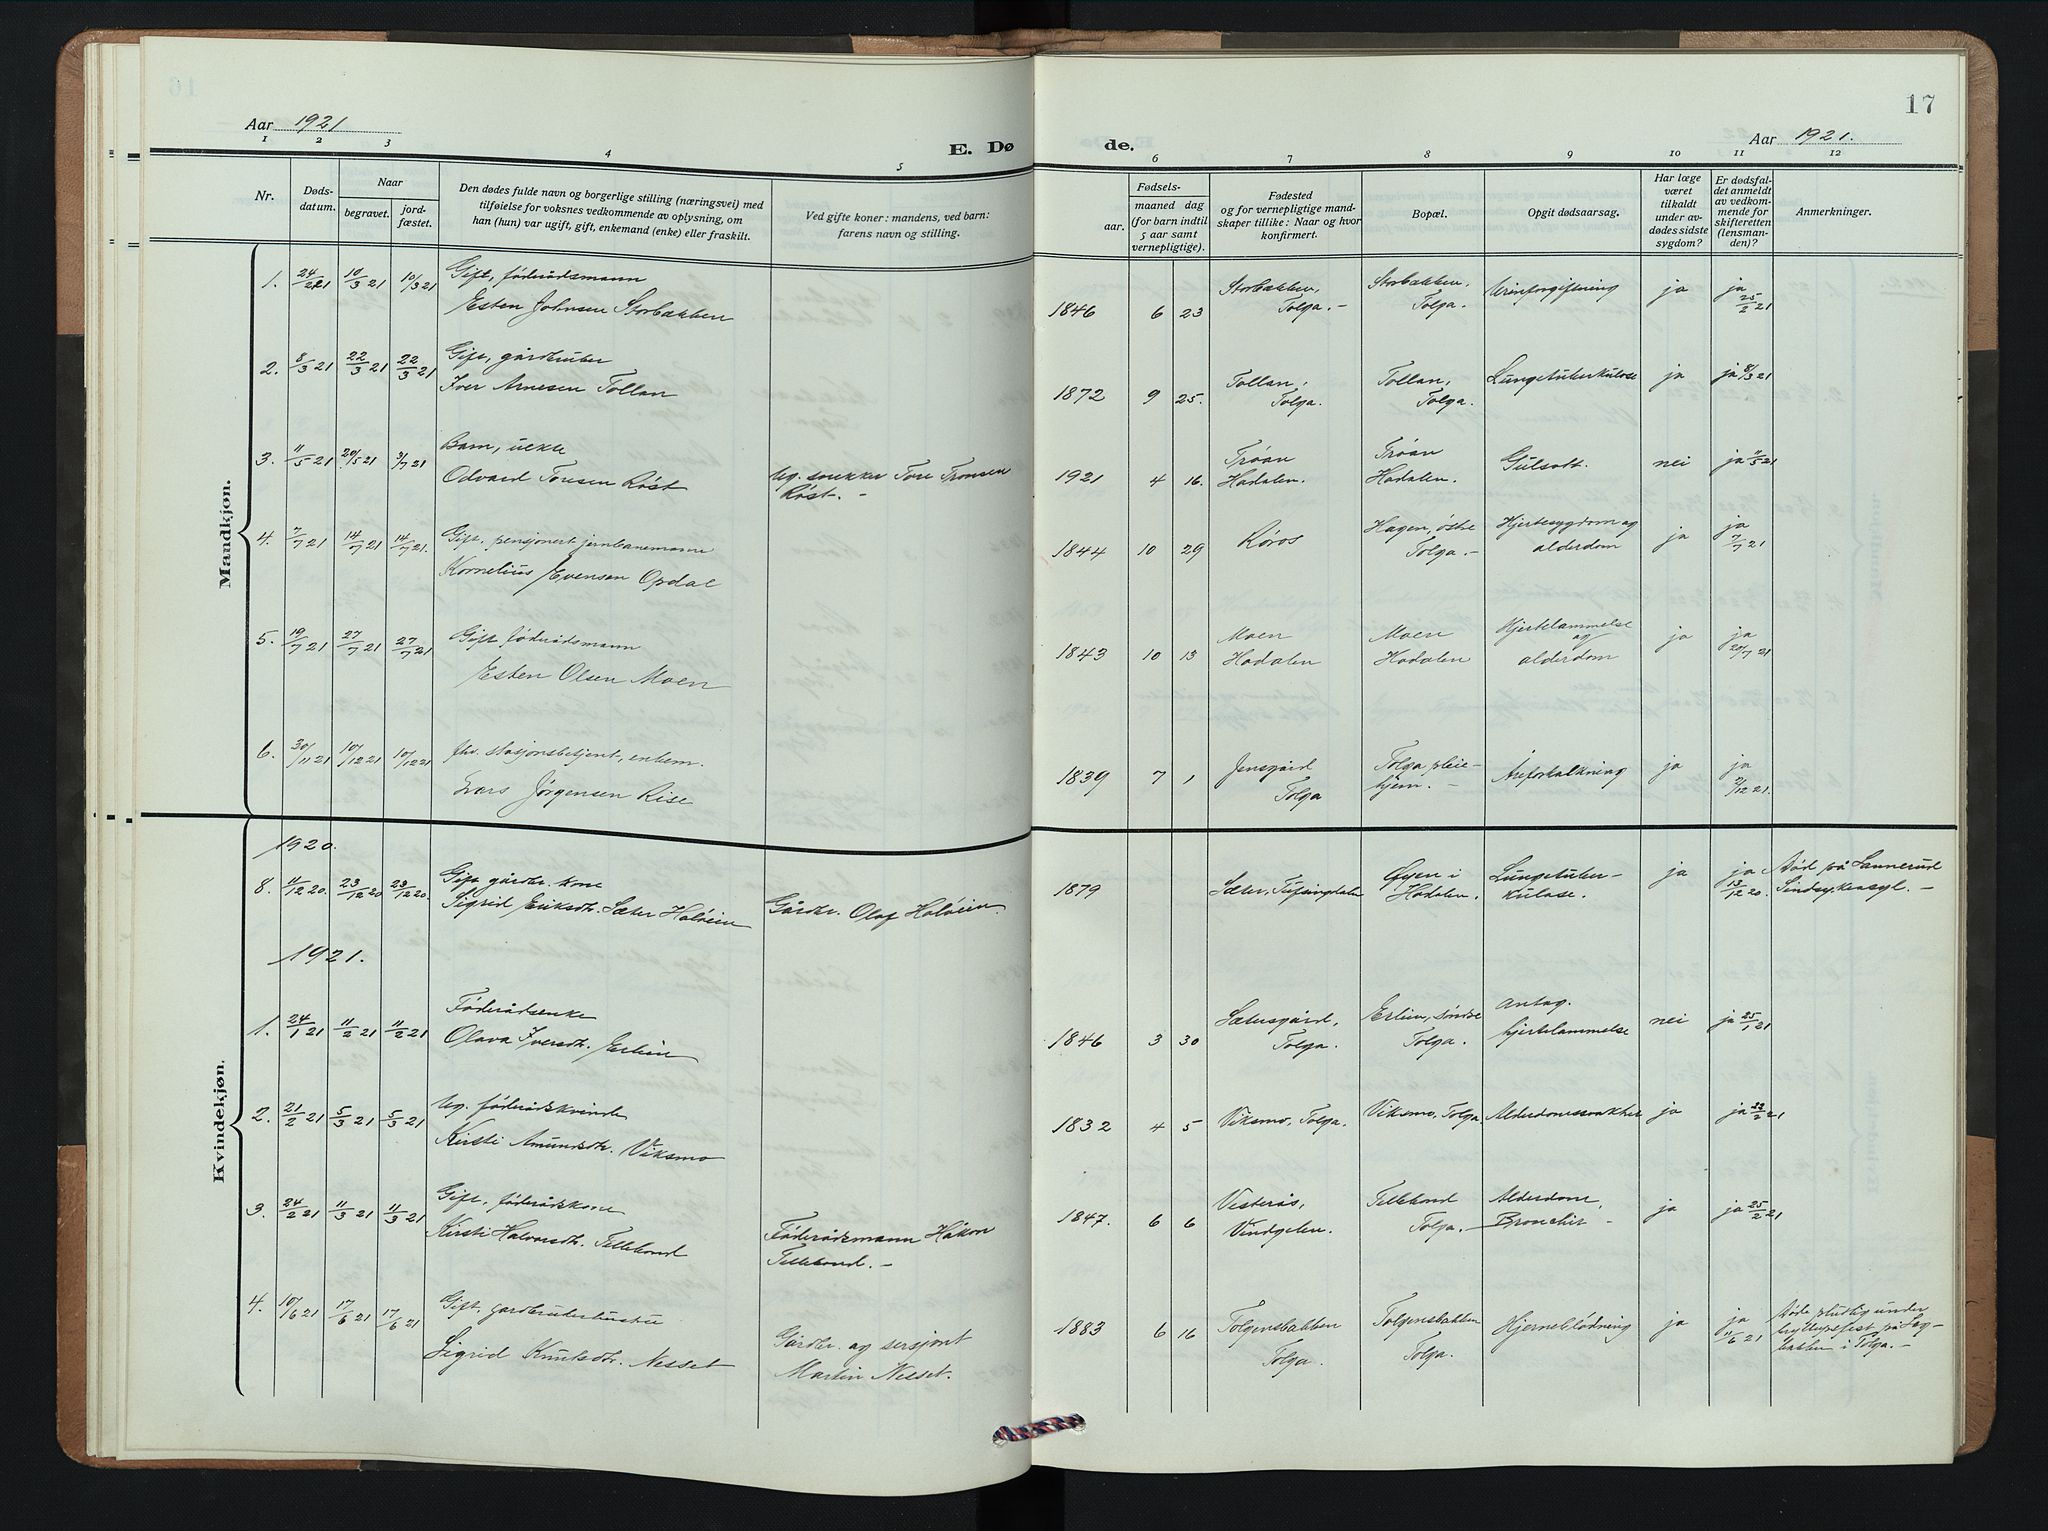 17
Aar 1921
Aar 1921.
E. Dø
de.
1 2 3 4 5 6 7 8 9 10 11 12
Nr.
Døds-
datum.
Naar
begravet.
jord-
fæstet.
Den dødes fulde navn og borgerlige stilling (næringsvei) med
tilføielse for voksnes vedkommende av oplysning, om
han (hun) var ugift, gift, enkemand (enke) eller fraskilt.
Ved gifte koner: mandens, ved barn:
farens navn og stilling.
Fødsels-
aar.
maaned dag
(for barn indtil
5 aar samt
vernepligtige).
Fødested
og for vernepligtige mand-
skaper tillike: Naar og hvor
konfirmert.
Bopæl.
Opgit dødsaarsag.
Har læge
været
tilkaldt
under av-
dødes sidste
sygdom?
Er dødsfal-
det anmeldt
av vedkom-
mende for
skifteretten
(lensman-
den)?
Anmerkninger.
Mandkjøn.
1. 24/2 21 10/3 21 10/3 21 Gift, føderådsmann
Esten Johnsen Storbakken
1846 6 23 Storbakken, Tolga. - Storbakken, Tolga. Urinforgiftning ja ja 25/2 21
2. 8/3 21 22/3 21 22/3 21 Gift, gårdbruker
Iver Arnesen Tollan
1872 9 25. Tollan, Tolga. Tollan, Tolga. Lungetuberkulose ja ja 8/3 21
3. 11/5 21 20/5 21 3/7 21 Barn, uekte
Odvard Toresen Røst Ug. snekker Tore Tronsen
Røst. -
1921 4 16. Trøan Hodalen. Trøan Hodalen. Gulsott. nei ja 11/5 21
4. 7/7 21 14/7 21 14/7 21. Gift, pensjonert jernbanemann
Kornelius Evensen Opdal
1844 10 29 Røros Hagen, østre Tolga. - Hjertesygdom og alderdom ja ja 7/7 21
5. 19/7 21 27/7 21 27/7 21 Gift føderådsmann
Esten Olsen Moen
1843 10 13 Moen Hodalen Moen Hodalen Hjertelammelse og alderdom ja ja 20/7 21
6. 30/11 21 10/12 21 10/12 21 fhv. stasjonsbetjent, enkem.
Lars Jørgensen Rise
1839 7 1 Jensgård Tolga Tolga pleie-hjem. - Åreforkalkning ja ja 2/12 21.
Kvindekjøn.
1920.
8. 11/12 20. 23/12 20 23/12 20. Gift gårdbr. kone
Sigrid Eriksdtr. Sæter Holøien Gårdbr. Olaf Holøien.
1879 Sæter, Tufsingdalen Øyen i Hodalen. Lungetuber-kulose. ja ja 13/12 20. Død på Sannerud
Sindssykeasyl. -
1921.
1. 24/1 21 11/2 21 11/2 21 Føderådsenke
Olava Iversdtr. Erlien
1846 3 30 Sætersgård, Tolga. Erlien, søndre Tolga. Antag. hjertelammelse nei ja 25/1 21
2. 21/2 21 5/3 21 5/3 21 Ug. føderådskvinde
Kirsti Amundsdtr. Viksmo
1832 4 5 Viksmo, Tolga. Viksmo, Tolga. Alderdomssvakhet ja ja 22/2 21
3. 24/2 21 11/3 21 11/3 21 Gift, føderådskone
Kirsti Halvorsdtr. Tellebond Føderådsmann Håkon
Tellebond. -
1847. 6 6 Vesterås, Vindgelen. Tellebond Tolga. - Alderdom, Bronchit - ja ja 25/2 21
4. 10/6 21 17/6 21 17/6 21 Gift, gardbrukerhustru
Sigrid Knutsdtr. Nesset Gårdbr. og sersjant
Martin Nesset.
1883 6 16 Tolgensbakken Tolga. Tolgensbakken Tolga. Hjerneblødning ja ja 11/6 21 Døde pludslig under
bryllupsfest på
bakken i Tolga. -